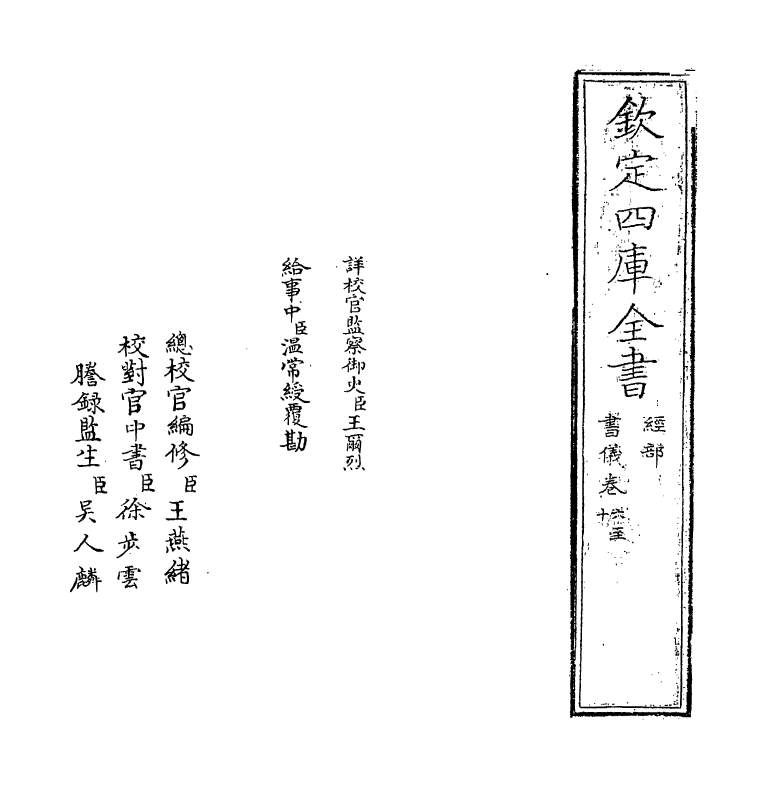 欽定四庫全書
經部
書儀卷六至十
詳校官監察御史臣王爾烈
給事中臣温常綬覆勘
總校官編修臣王燕緒
校對官中書臣徐步雲
謄録監生臣吴人麟